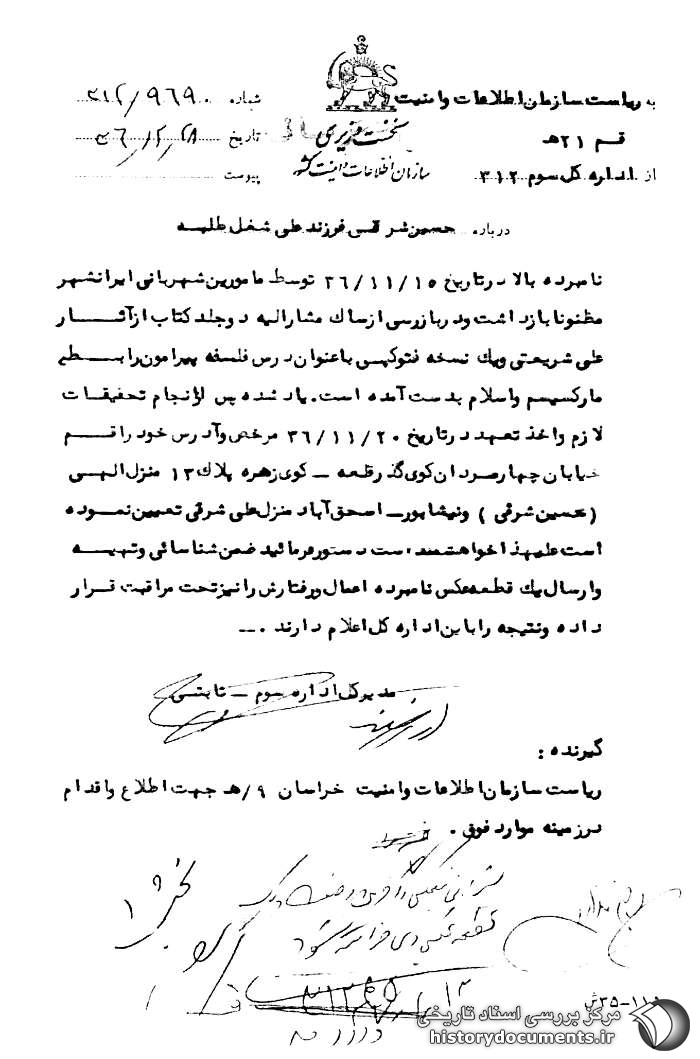 به ریاست سازمان اطلاعات و امنیت
شماره ۳۱۲/۹۶۹۰
قم ۲۱ هـ
نخست وزیری
تاریخ ۳۶/۱۲/۲۸
از اداره کل سوم ۳۱۲
سازمان اطلاعات و امنیت کشور
پیوست
درباره حسین شرقی فرزند علی شغل طلبه
نامبرده بالا در تاریخ ۳۶/۱۱/۱۵ توسط مامورین شهربانی ایرانشهر
مظنونا بازداشت و در بازرسی از ساک مشارالیه دو جلد کتاب از آثار
علی شریعتی و یک نسخه فتوکپی با عنوان درس فلسفه پیرامون رابطه
مارکسیسم و اسلام بدست آمده است. یاد شده پس از انجام تحقیقات
لازم و اخذ تعهد در تاریخ ۳۶/۱۱/۲۰ مرخص و آدرس خود را قم
خیابان چهارمردان کوی گذرقلعه - کوی زهره پلاک ۱۳ منزل الهی
(حسین شرقی) و نیشابور - اسحق آباد منزل علی شرقی تعیین نموده
است علیهذا خواهشمند است دستور فرمائید ضمن شناسائی و تهیه
و ارسال یک قطعه عکس نامبرده اعمال و رفتارش را نیز تحت مراقبت قرار
داده و نتیجه را باین اداره کل اعلام دارند .--
مدیر کل اداره سوم - ثابتی
گیرنده :
ریاست سازمان اطلاعات و امنیت خراسان ۹/هـ جهت اطلاع و اقدام
در زمینه موارد فوق .
قطعه عکس وی فرا گرفته شود
۳۵-۱۱۰ش
مرکز بررسی اسناد تاریخی
historydocuments.ir